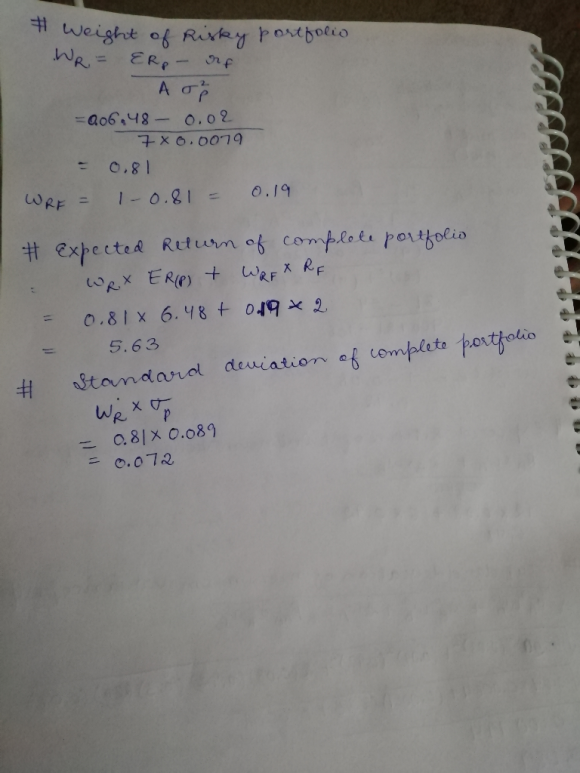 # Weight of Risky portfolio
WR = ERp − rf
A σp²
= 006.48 − 0.02
7 × 0.0079
= 0.81
WRF = 1 − 0.81 = 0.19
# Expected Return of complete portfolio
: WR × ER(P) + WRF × RF
= 0.81 × 6.48 + 0.19 × 2
= 5.63
# Standard deviation of complete portfolio
WR × σp
= 0.81 × 0.089
= 0.072